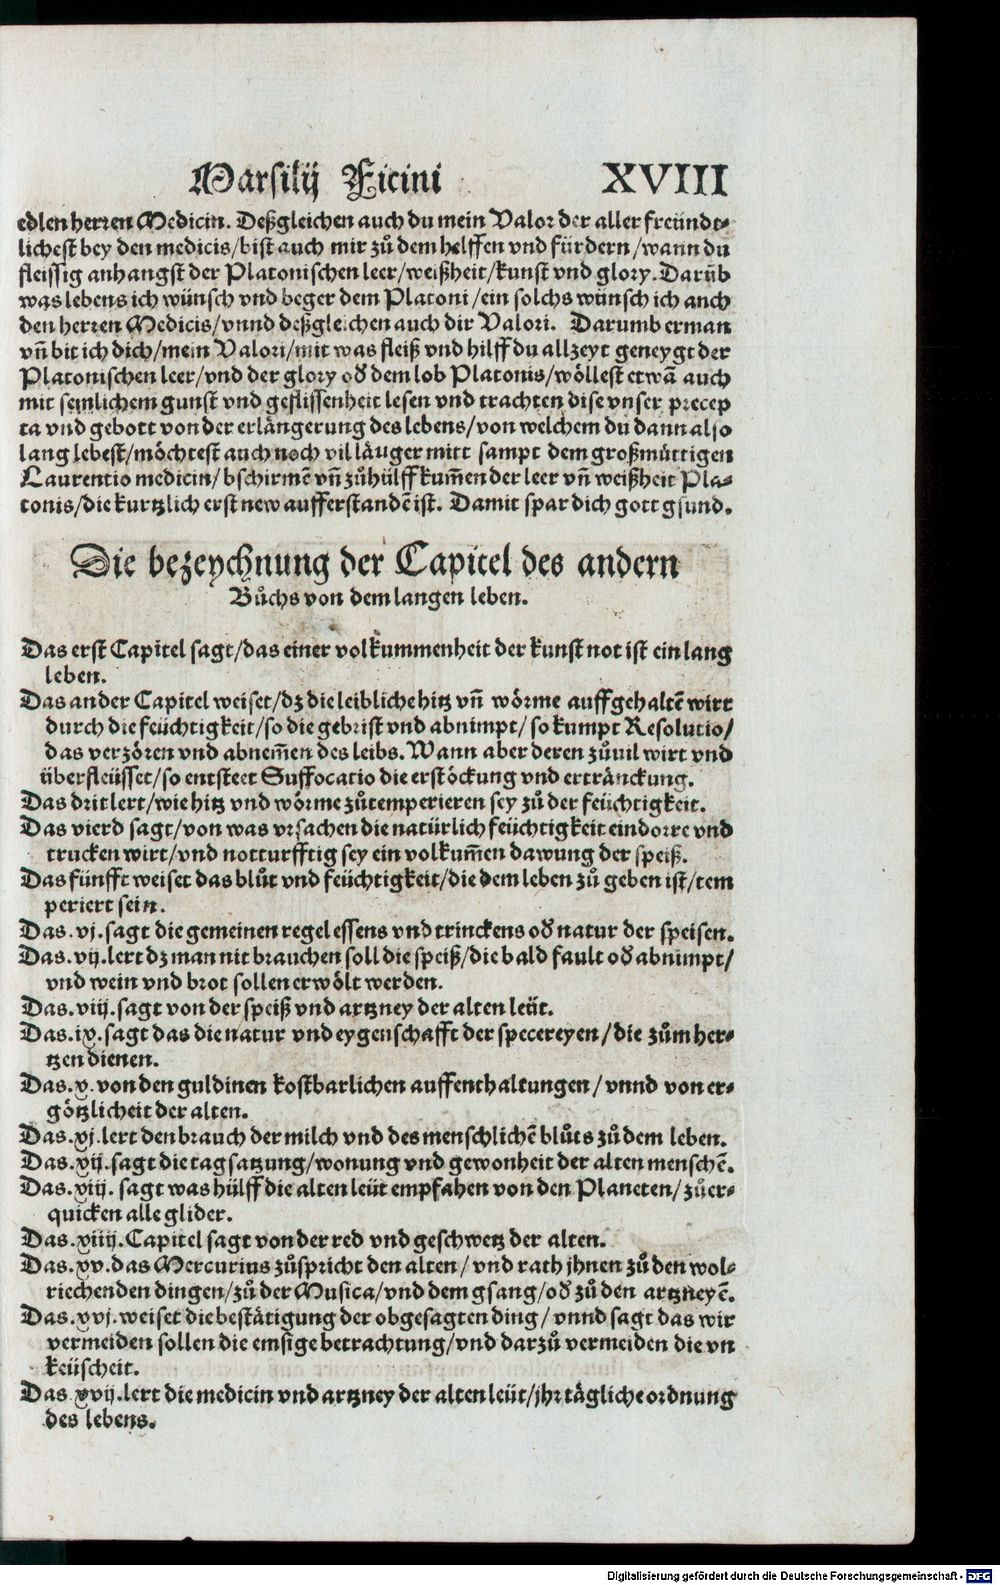 Marsilij Ficini XVIII
edlen herren Medicin. Deßgleichen auch du mein Valor der aller freündt-
lichest bey den medicis/bist auch mir zů dem helffen vnd fürdern/wann du
fleissig anhangst der Platonischen leer/weißheit/kunst vnd glory. Darüb
was lebens ich wünsch vnd beger dem Platoni/ein solchs wünsch ich anch
den herren Medicis/vnnd deßgleichen auch dir Valori. Darumb erman
vñ bit ich dich/mein Valori/mit was fleiß vnd hilff du allzeyt geneygt der
Platonischen leer/vnd der glory oď dem lob Platonis/wöllest etwã auch
mit semlichem gunst vnd geflissenheit lesen vnd trachten dise vnser precep
ta vnd gebott von der erlängerung des lebens/von welchem du dann also
lang lebest/möchtest auch noch vil läuger mitt sampt dem großmüttigen
Laurentio medicin/bschirmẽ vñ zůhülff kum̃en der leer vñ weißheit Pla-
tonis/die kurtzlich erst new aufferstandẽ ist. Damit spar dich gott gsund.
Die bezeychnung der Capitel des andern
Bůchs von dem langen leben.
Das erst Capitel sagt/das einer volkummenheit der kunst not ist ein lang
leben.
Das ander Capitel weiset/dz die leibliche hitz vñ wörme auffgehaltẽ wirt
durch die feüchtigkeit/so die gebrist vnd abnimpt/so kumpt Resolutio/
das verzören vnd abnem̃en des leibs. Wann aber deren zůuil wirt vnd
überfleüsset/so entsteet Suffocatio die erstöckung vnd ertränckung.
Das drit lert/wie hitz vnd wörme zůtemperieren sey zů der feüchtigkeit.
Das vierd sagt/von was vrsachen die natürlich feüchtigkeit eindorre vnd
trucken wirt/vnd notturfftig sey ein volkum̃en dawung der speiß.
Das fünfft weiset das blůt vnd feüchtigkeit/die dem leben zů geben ist/tem
periert sein.
Das .vj. sagt die gemeinen regel essens vnd trinckens oď natur der speisen.
Das .vij. lert dz man nit brauchen soll die speiß/die bald fault oď abnimpt/
vnd wein vnd brot sollen erwölt werden.
Das .viij. sagt von der speiß vnd artzney der alten leüt.
Das .ix. sagt das die natur vnd eygenschafft der specereyen/die zům her-
tzen dienen.
Das .x. von den guldinen kostbarlichen auffenthaltungen/vnnd von er-
götzlicheit der alten.
Das .xj. lert den brauch der milch vnd des menschlichẽ blůts zů dem leben.
Das .xij. sagt die tagsatzung/wonung vnd gewonheit der alten menschẽ.
Das .xiij. sagt was hülff die alten leüt empfahen von den Planeten/zů er-
quicken alle glider.
Das .xiiij. Capitel sagt von der red vnd geschwetz der alten.
Das .xv. das Mercurius zůspricht den alten/vnd rath jhnen zů den wol-
riechenden dingen/zů der Musica/vnd dem gsang/oď zů den artzneyẽ.
Das .xvj. weiset die bestätigung der obgesagten ding/vnnd sagt das wir
vermeiden sollen die emsige betrachtung/vnd darzů vermeiden die vn
keüscheit.
Das .xvij. lert die medicin vnd artzney der alten leüt/jhr tägliche ordnung
des lebens.
Digitalisierung gefördert durch die Deutsche Forschungsgemeinschaft - DFG